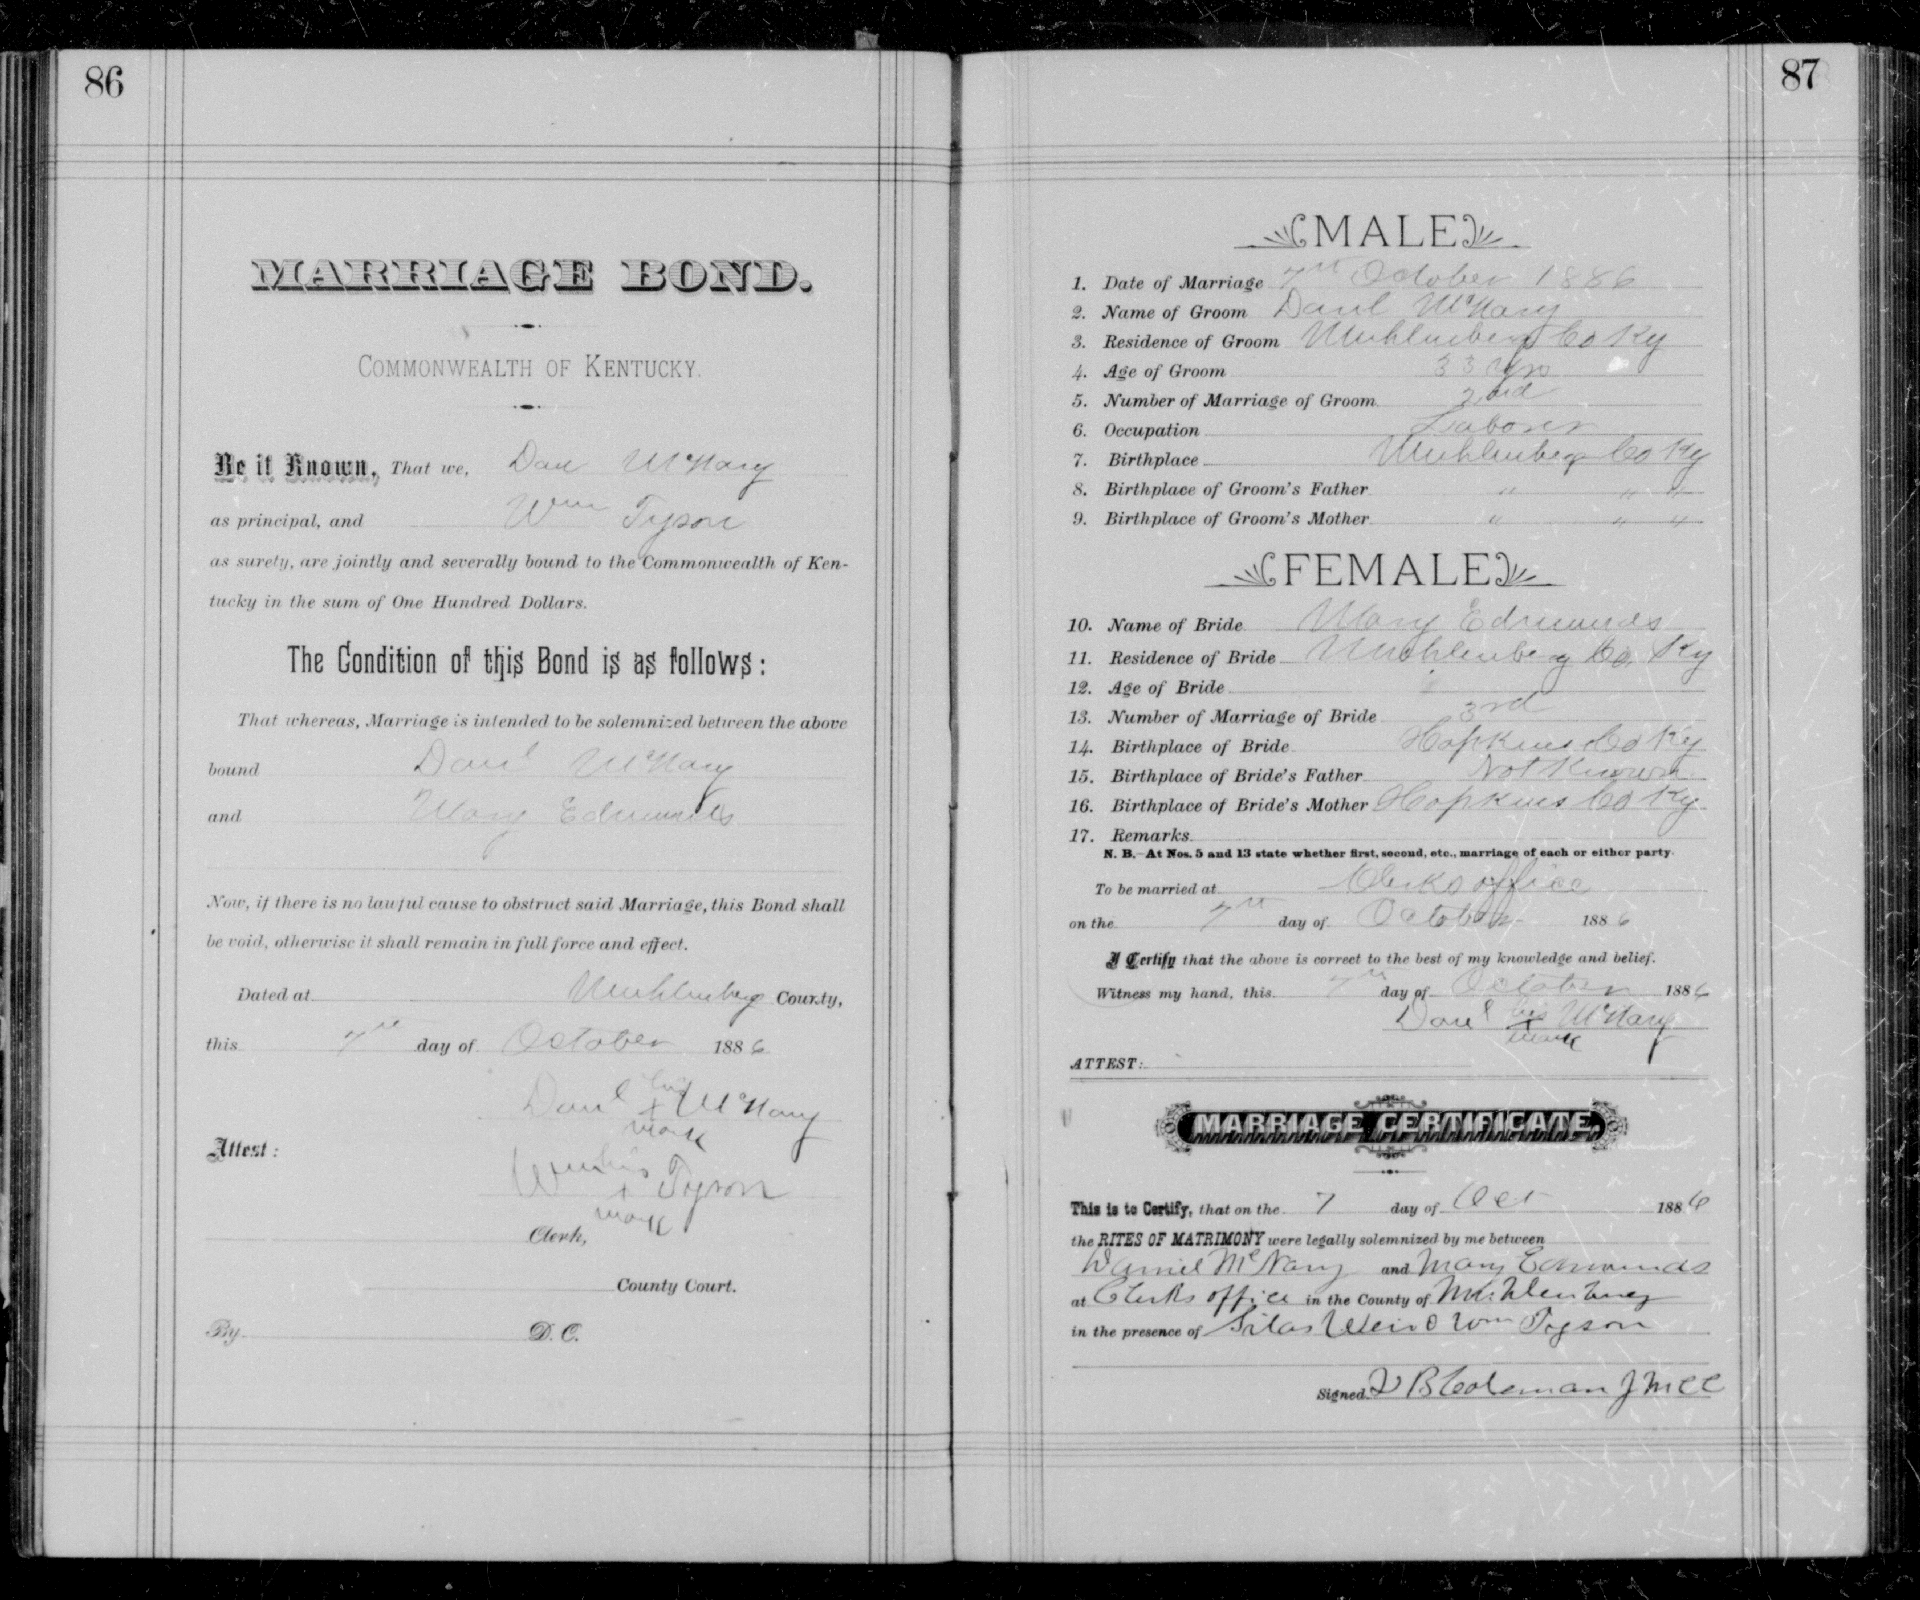 86
MARRIAGE BOND.
COMMONWEALTH OF KENTUCKY.
Be it Known, That we, Danl McNary
as principal, and Wm Tyson
as surety, are jointly and severally bound to the Commonwealth of Ken-
tucky in the sum of One Hundred Dollars.
The Condition of this Bond is as follows:
That whereas, Marriage is intended to be solemnized between the above
bound Danl McNary
and Mary Edmunds
Now, if there is no lawful cause to obstruct said Marriage, this Bond shall
be void, otherwise it shall remain in full force and effect.
Dated at Muhlenberg County,
this 7th day of October 1886
Danl his x mark McNary
Attest:
Wm his x mark Tyson
Clerk,
County Court.
By D. C.
87
MALE
1. Date of Marriage 7th October 1886
2. Name of Groom Danl McNary
3. Residence of Groom Muhlenberg Co Ky
4. Age of Groom 33 yrs
5. Number of Marriage of Groom 2nd
6. Occupation Laborer
7. Birthplace Muhlenberg Co Ky
8. Birthplace of Groom's Father " " "
9. Birthplace of Groom's Mother " " "
FEMALE
10. Name of Bride Mary Edmunds
11. Residence of Bride Muhlenberg Co. Ky
12. Age of Bride
13. Number of Marriage of Bride 3rd
14. Birthplace of Bride Hopkins Co Ky
15. Birthplace of Bride's Father Not Known
16. Birthplace of Bride's Mother Hopkins Co Ky
17. Remarks
N. B.—At Nos. 5 and 13 state whether first, second, etc., marriage of each or either party.
To be married at Clerks office
on the 7th day of October 1886
I Certify that the above is correct to the best of my knowledge and belief.
Witness my hand, this 7th day of October 1886
Danl his x mark McNary
ATTEST:
MARRIAGE CERTIFICATE.
This is to Certify, that on the 7 day of Oct 1886
the RITES OF MATRIMONY were legally solemnized by me between
Daniel McNary and Mary Edmunds
at Clerks office in the County of Muhlenberg
in the presence of Silas Weir & Wm Tyson
Signed B Coleman J M C C